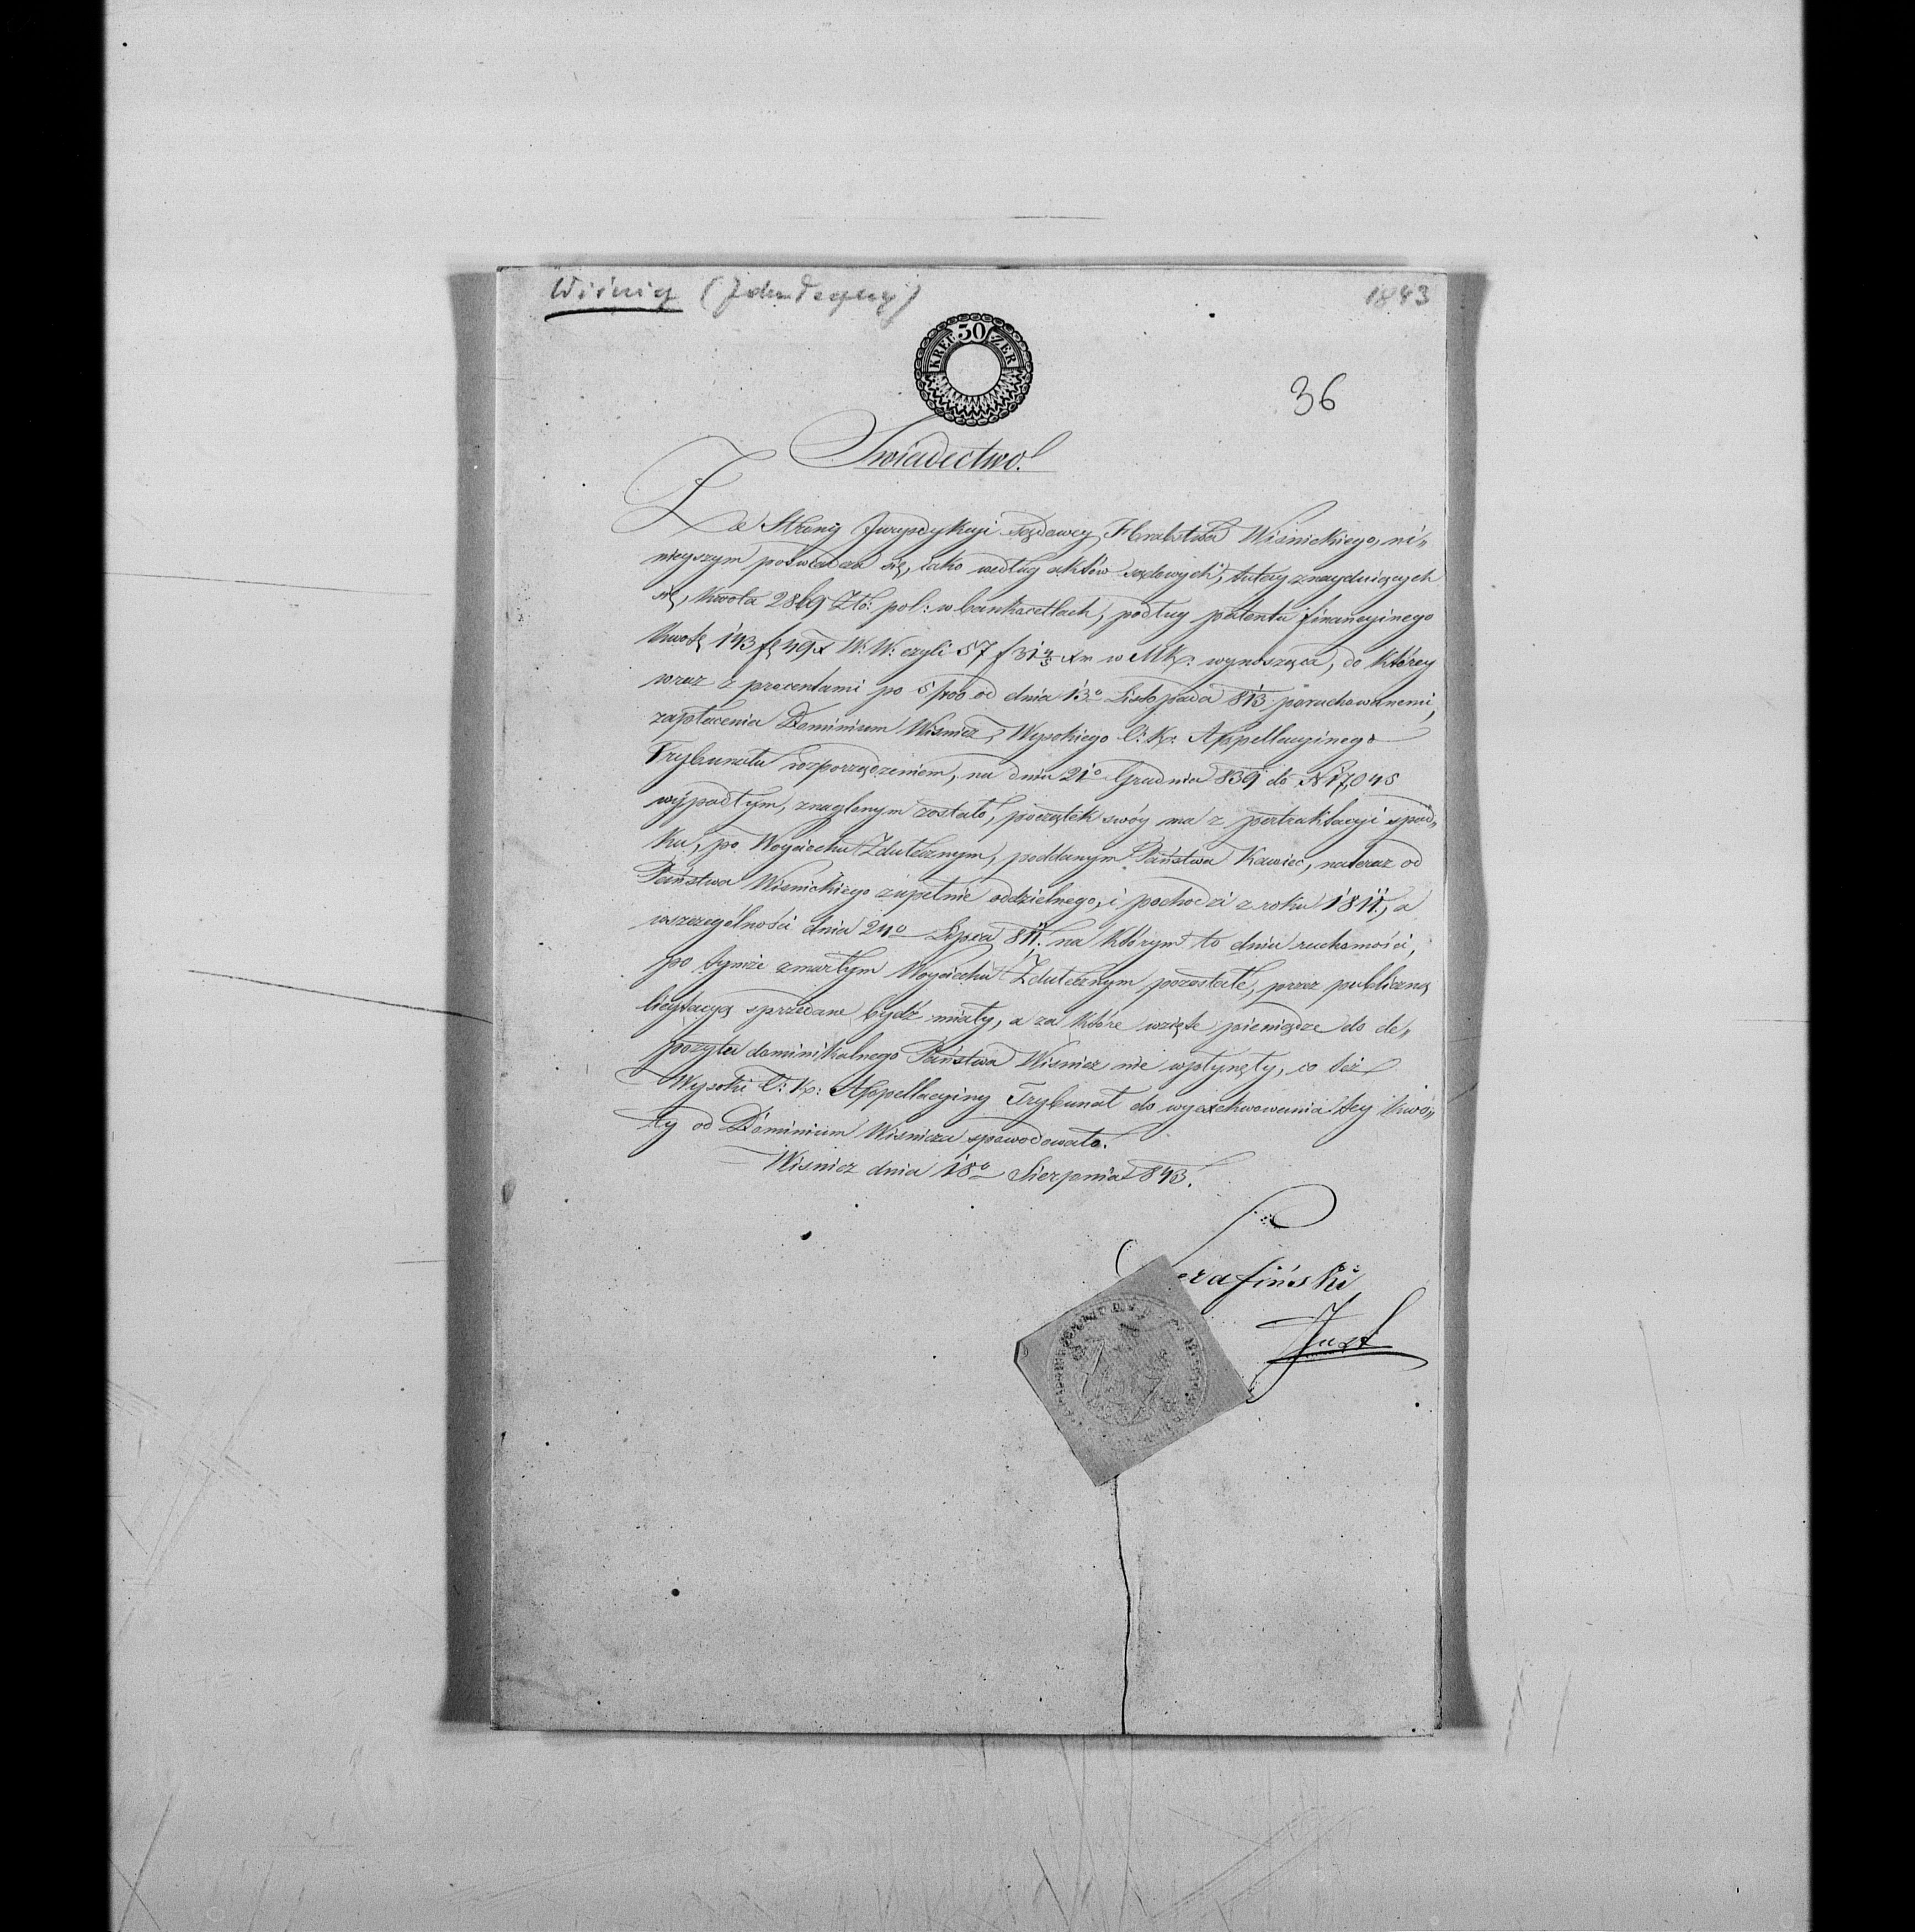 Wiśnicz (Zduteczny) 1843
KREU 30 ZER
36
Swiadectwo!
Ze Strony Juryzdykcyi sądowey Hrabstwa Wisnickiego, ni„
nieyszym poświadcza się, iako według aktów sądowych, tutay znayduiących
się, kwota 2869 Złt: pol: w bankocetlach, podług patentu finansyinego
kwotę 143 fl 49 x W: W: czyli 57 f 31 4/5 xr w MK. wynosząca, do którey
wraz z procentami po 5/100 od dnia 13o Listopada 813 porachowanemi,
zapłacenia Dominium Wisnicz, Wysokiego C: K: Appellacyinego
Trybunału rozporządzeniem, na dniu 21o Grudnia 839 do N 17,045
wypadłym, znaglonym zostało, początek swóy ma z pertraktacyi spad„
ku, po Woyciechu Zdutecznym, poddanym Państwa Kawiec, nateraz od
Państwa Wisnickiego zupełnie oddzielnego, i pochodzi z roku 1811, a
wszczególności dnia 24o Lipca 811. na którym to dniu ruchomości,
po tymże zmarłym Woyciechu Zdutecznym pozostałe, przez publiczną
licytacyą sprzedane bydź miały, a za które wzięte pieniądze do de„
pozytu dominikalnego Państwa Wisnicz nie wpłynęły, co też
Wysoki C: K: Appellacyiny Trybunał do wyexekwowania tey kwo„
ty od Dominium Wisnicza spowodowało.
Wisnicz dnia 18o Sierpnia 843.
Serafiński
Just